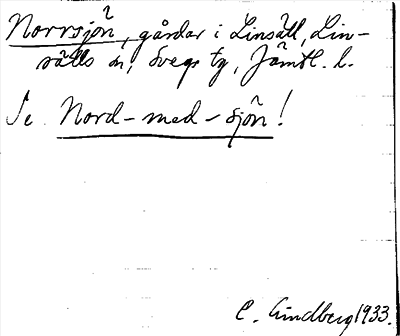 Norrsjön, gårdar i Linsäll, Lin-
sälls sn, Svegs tg, Jämtl. l.
Se Nord-med-sjön!
C. Lindberg 1933.